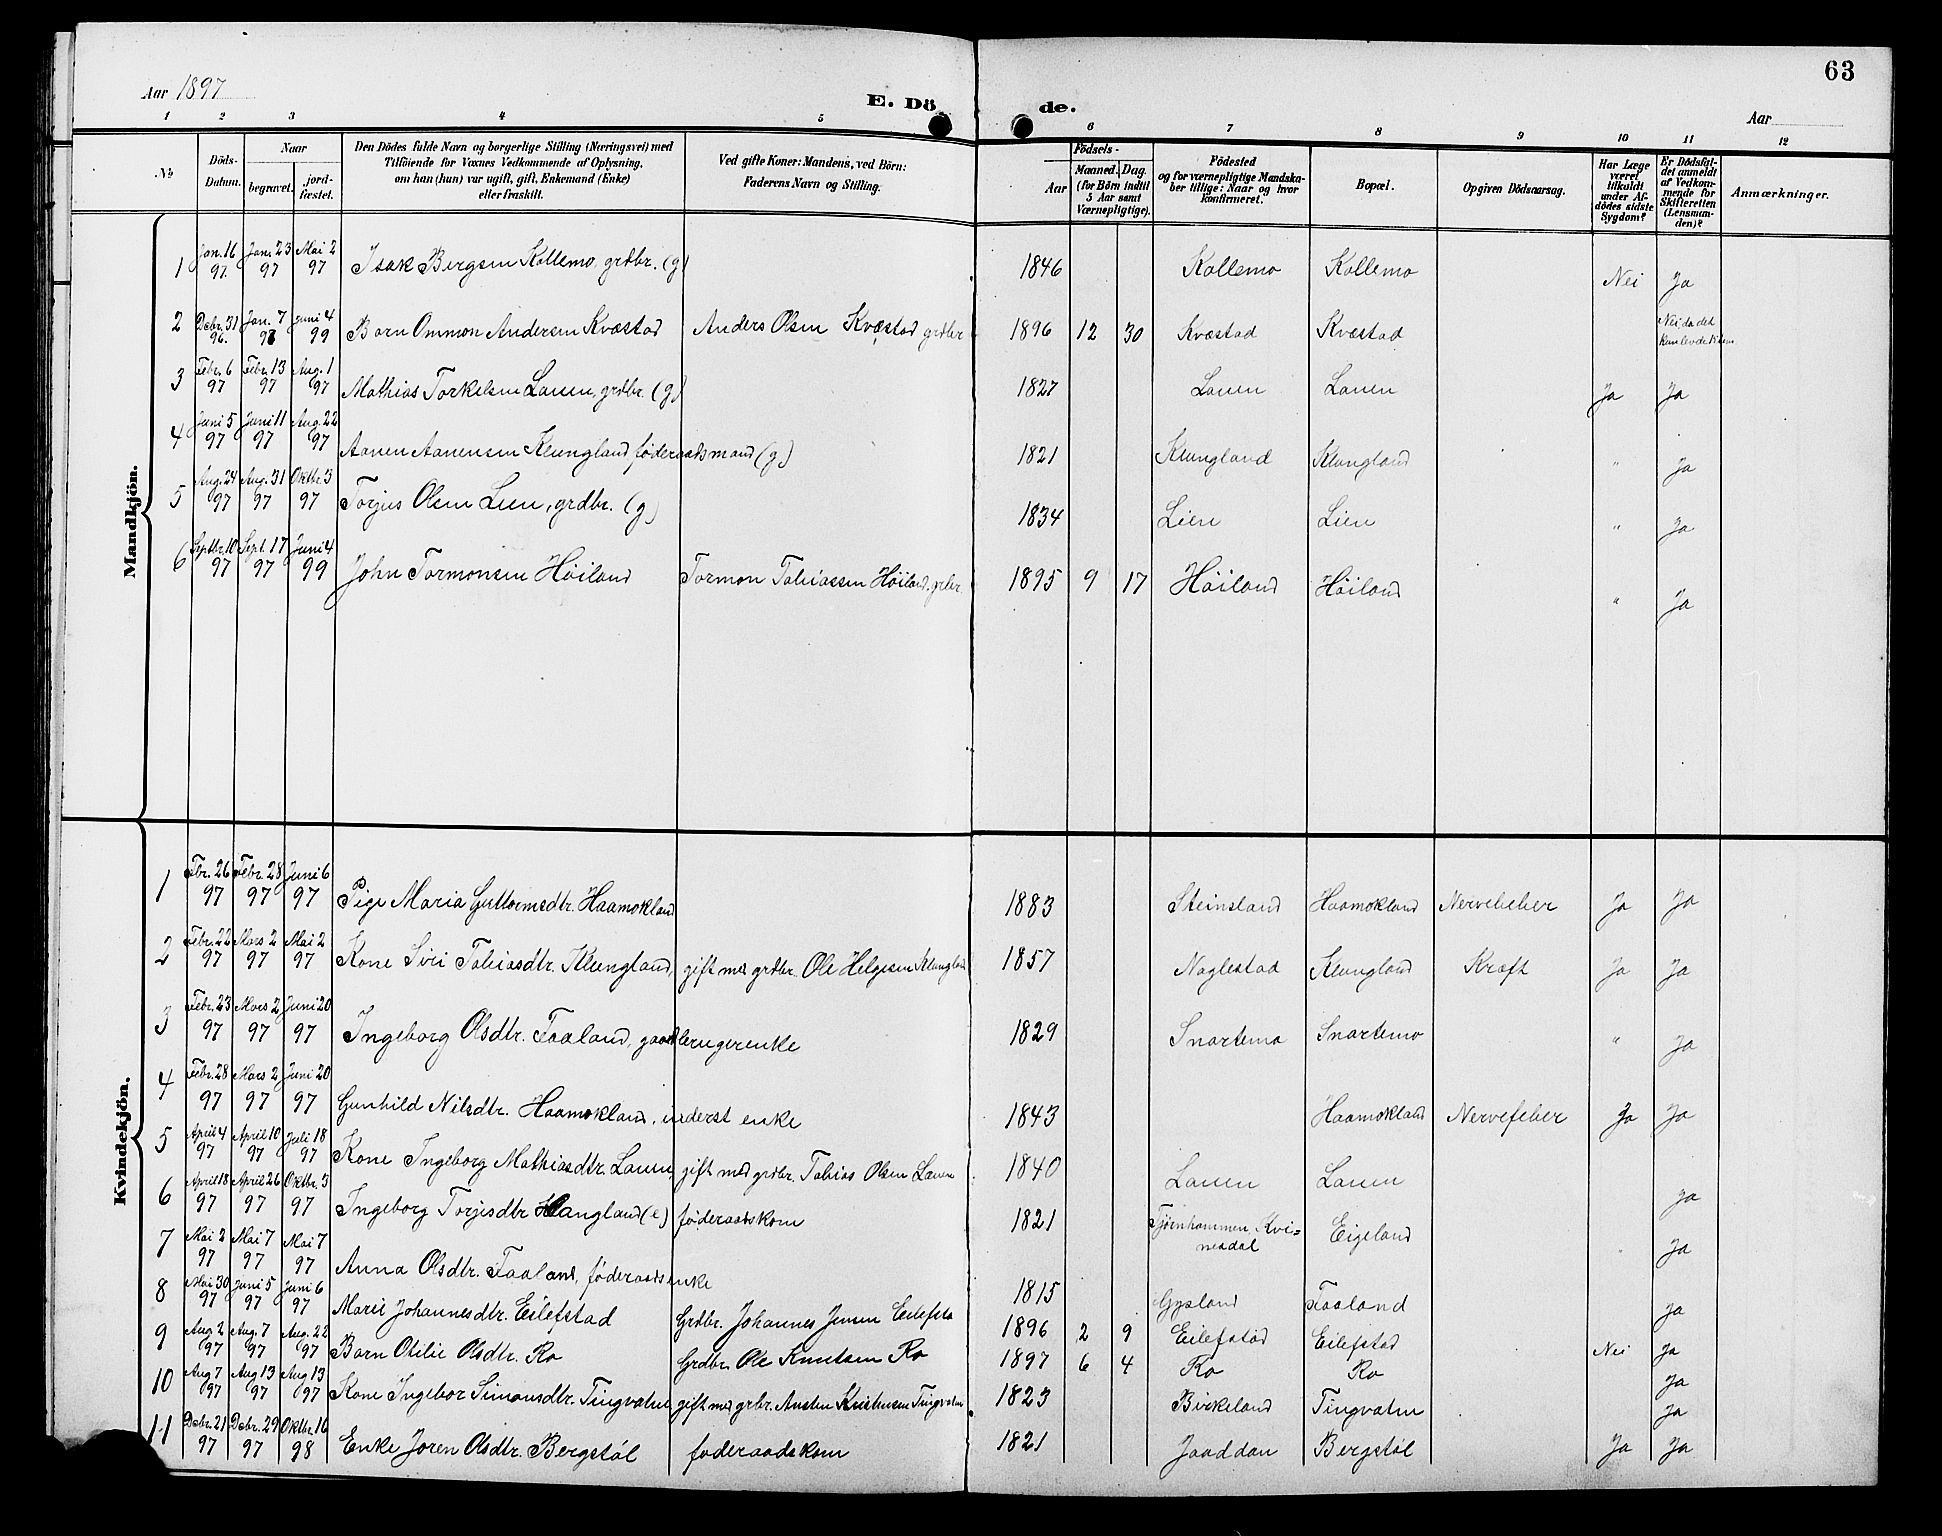 Aar 1897
E. Dö de.
63
Aar
1 2 3 4 5 6 7 8 9 10 11 12
No
Döds-Datum.
Naar
begravet.
jord-fæstet.
Den Dödes fulde Navn og borgerlige Stilling (Næringsvei) med
Tilföiende for Voxnes Vedkommende af Oplysning,
om han (hun) var ugift, gift, Enkemand (Enke)
eller fraskilt.
Ved gifte Koner: Mandens, ved Börn:
Faderens Navn og Stilling.
Födsels-
Aar
Maaned. Dag.
(for Börn indtil
5 Aar samt
Værnepligtige).
Födested
og for værnepligtige Mandska-
ber tillige: Naar og hvor
konfirmeret.
Bopæl.
Opgiven Dödsaarsag.
Har Læge
været
tilkaldt
under Af-
dödes sidste
Sygdom?
Er Dödsfal-
det anmeldt
af Vedkom-
mende for
Skifteretten
(Lensman-
den)?
Anmærkninger.
Mandkjön.
1 Jan. 16 97. Jan. 23 97 Mai 2 97 Isak Bergsen Kollemo, grdbr. (g) 1846 Kollemo Kollemo Nei Ja
2 Debr. 31 96. Jan. 7 97 Juni 4 99 Barn Ommon Andersen Kvæstad Anders Olsen Kvæstad grdbr 1896 12 30 Kvæstad Kvæstad Nei da det kun levde
3 Febr. 6 97 Febr. 13 97 Aug. 1 97 Mathias Torkelsen Lauen, grdbr. (g) 1827 Lauen Lauen Ja Ja
4 Juni 5 97 Juni 11 97 Aug. 22 97 Aanen Aanensen Klungland føderaadsmand (g) 1821 Klungland Klungland " Ja
5 Aug. 24 97 Aug. 31 97 Oktbr. 3 97 Torjus Olsen Lien, grdbr. (g) 1834 Lien Lien " Ja
6 Septbr. 10 97 Sept. 17 97 Juni 4 99 John Tormonsen Høiland Tormon Tobiassen Høiland, grbr. 1895 9 17 Høiland Høiland " Ja
Kvindekjön.
1 Febr. 26 97 Febr. 28 97 Juni 6 97 Pige Maria Guttormsdtr. Haamokland 1883 Steinsland Haamokland Nervefeber Ja Ja
2 Febr. 22 97 Mars 2 97 Mai 2 97 Kone Siri Tobiasdtr. Klungland, gift med grdbr. Ole Helgesen Klungland 1857 Naglestad Klungland Kræft Ja Ja
3 Febr. 23 97 Mars 2 97 Juni 20 97 Ingeborg Olsdtr. Faaland, gaardbrugerenke 1829 Snartemo Snartemo " Ja
4 Febr. 28 97 Mars 2 97 Juni 20 97 Gunhild Nilsdtr. Haamokland, inderst enke 1843 Haamokland Nervefeber Ja Ja
5 April 4 97 April 10 97 Juli 18 97 Kone Ingeborg Mathiasdtr. Lauen, gift med grdbr. Tobias Olsen Lauen 1840 Lauen Lauen Ja
6 April 18 97 April 26 97 Oktbr. 3 97 Ingeborg Torjisdtr (e) føderaadskom 1821 Tjørnhammen, Kvi=nesdal Eigeland " Ja
7 Mai 2 97 Mai 7 97 Mai 7 97 Anna Olsdtr. Faaland, føderaadsenke 1815 Gysland Faaland Ja
8 Mai 30 97 Juni 5 97 Juni 6 97 Marie Johannesdtr. Eilefstad Grdbr. Johannes Jensen Eilefsta 1896 2 9 Eilefstad Eilefstad Nei Ja
9 Aug. 2 97 Aug. 7 97 Aug. 22 97 Barn Otilie Olsdtr. Ro Grdbr. Ole Knutsen Ro 1897 6 4 Ro Ro Ja
10 Aug 7 97 Aug 13 97 Aug 13 97 Kone Ingebor Simonsdtr. Tingvatn gift med grbr. Austen Kristensen Tingvatn 1823 Birkeland Tingvatn Ja
11 Debr. 21 97 Debr. 29 97 Oktbr. 16 98 Enke Joren Olsdtr. Bergstøl føderaadskom 1821 Jaaddan Bergstøl Ja Ja